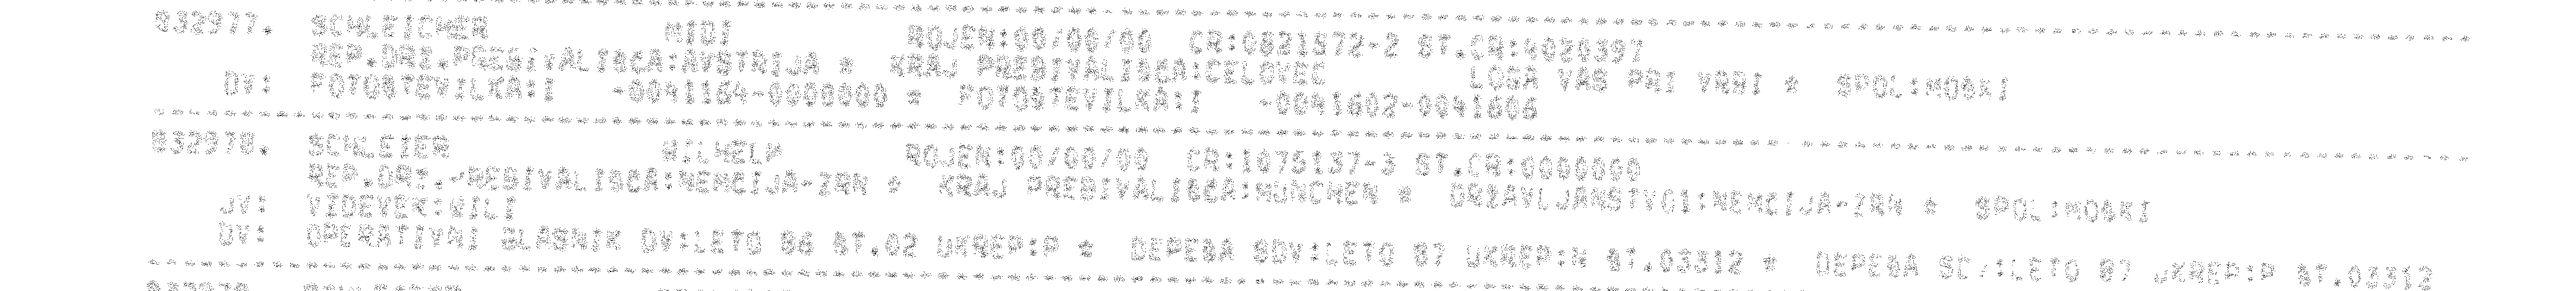 832977. SCHLEICHER MIDI ROJEN:00/00/00 CR:0821572-2 ST.CR:4020397
REP.DRZ.PREBIVALISCA:AVSTRIJA * KRAJ PREBIVALISCA:CELOVEC LOGA VAS PRI VRBI * SPOL:MOSKI
DV: FOTOSTEVILKA:I -0041164-0000000 * FOTOSTEVILKA:I -0041602-0041606
832978. SCHLEIER WILHELM ROJEN:00/00/00 CR:1075137-3 ST.CR:0000000
REP.DRZ.PREBIVALISCA:NEMCIJA-ZRN * KRAJ PREBIVALISCA:MUNCHEN * DRZAVLJANSTVO1:NEMCIJA-ZRN * SPOL:MOSKI
JV: VIDEVEK:WILI
DV: OPERATIVNI GLASNIK DV:LETO 86 ST.02 UKREP:P * DEPESA SDV:LETO 87 UKREP:N ST.03312 * DEPESA LETO 87 UKREP:P ST.03312